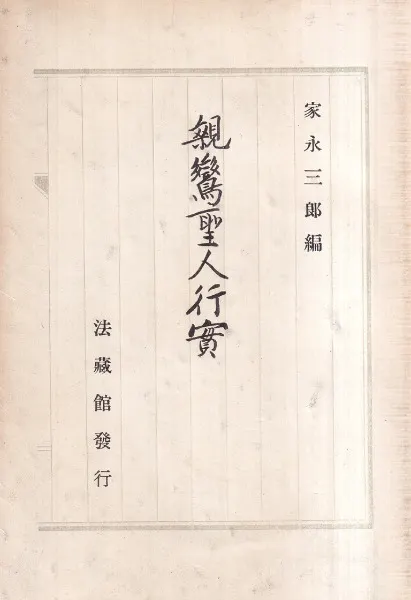 家永三郎編
親鸞聖人行實
法藏館發行